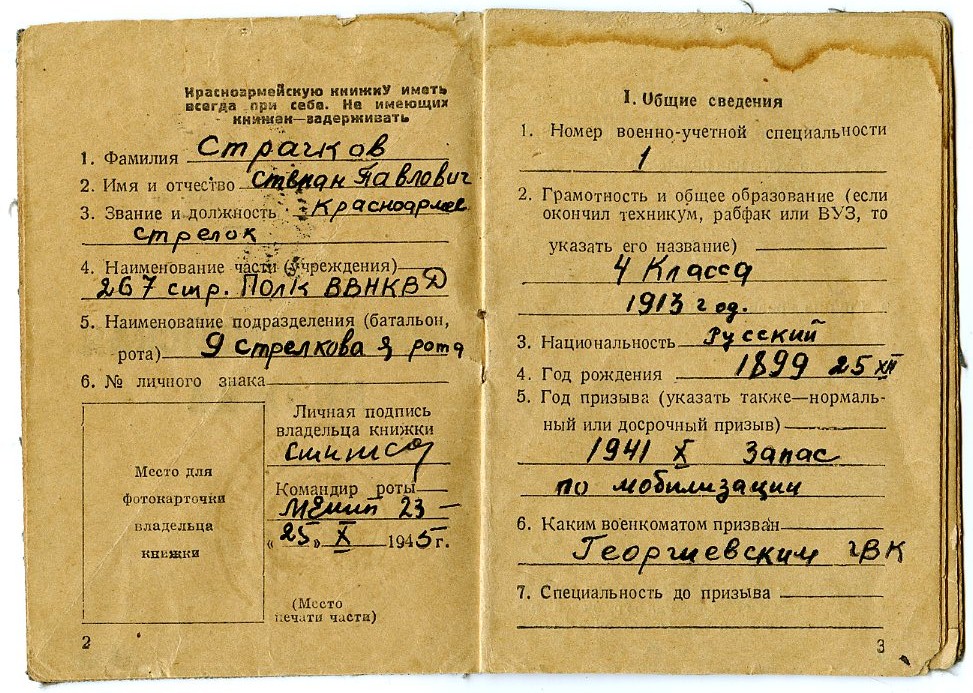 Красноармейскую книжку иметь
всегда при себе. Не имеющих
книжек—задерживать
1. Фамилия Страчков
2. Имя и отчество Степан Павлович
3. Звание и должность Красноармее
стрелок
4. Наименование части (учреждения)
267 стр. Полк ВВНКВД
5. Наименование подразделения (батальон,
рота) 9 стрелковая рота
6. № личного знака
Место для
фотокарточки
владельца
книжки
Личная подпись
владельца книжки
Командир роты
23 —
«25» X 1945 г.
(Место
печати части)
2
I. Общие сведения
1. Номер военно-учетной специальности
1
2. Грамотность и общее образование (если
окончил техникум, рабфак или ВУЗ, то
указать его название)
4 Класса
1913 год.
3. Национальность Русский
4. Год рождения 1899 25 XII
5. Год призыва (указать также—нормаль-
ный или досрочный призыв)
1941 X Запас
по мобилизации
6. Каким военкоматом призван
Георгиевским гВК
7. Специальность до призыва
3